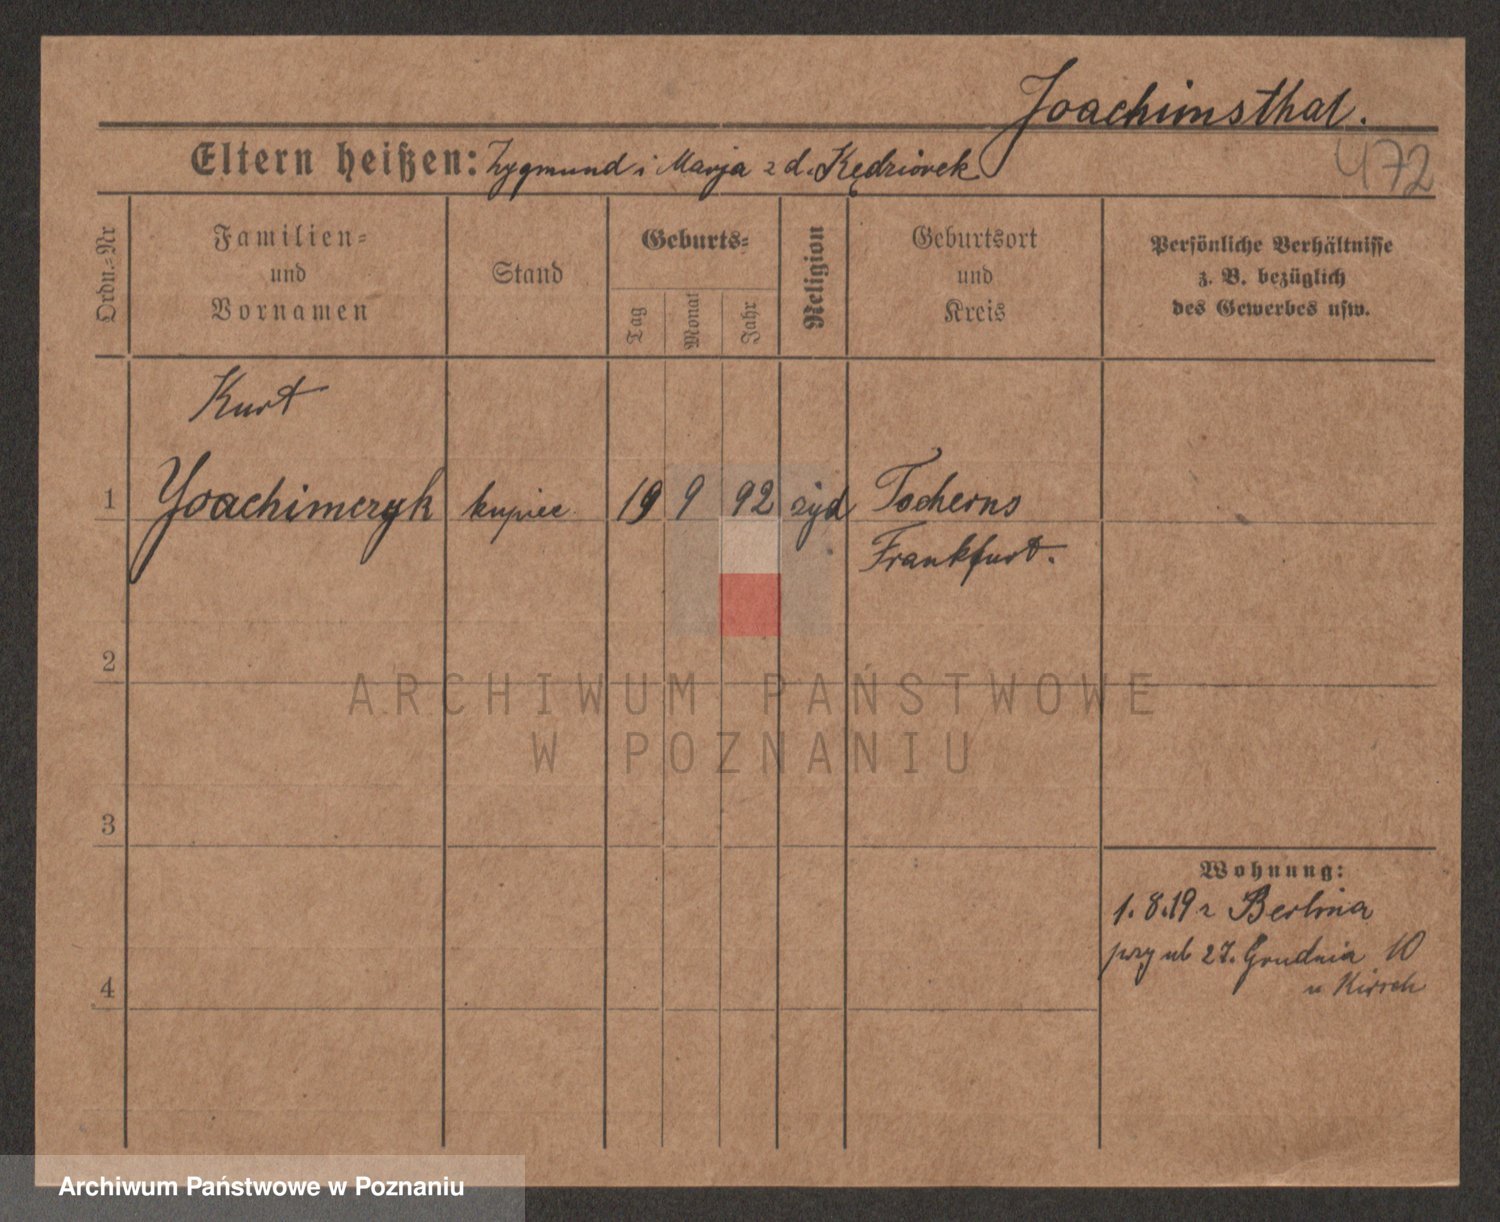 Joachimsthal.
Eltern heißen: Zygmund i Marja z d. Kędziorek
472
Ordn.-Nr
Familien-
und
Vornamen
Stand
Geburts-
Tag
Monat
Jahr
Religion
Geburtsort
und
Kreis
Persönliche Verhältnisse
z. B. bezüglich
des Gewerbes usw.
Kurt
1 Joachimczyk kupiec 19 9 92 żyd Tscherns
Frankfurt.
2
ARCHIWUM PAŃSTWOWE
W POZNANIU
3
Wohnung:
1.8.19 z Berlina
przy ul 27. Grudnia 10
u Kirsch
4
Archiwum Państwowe w Poznaniu